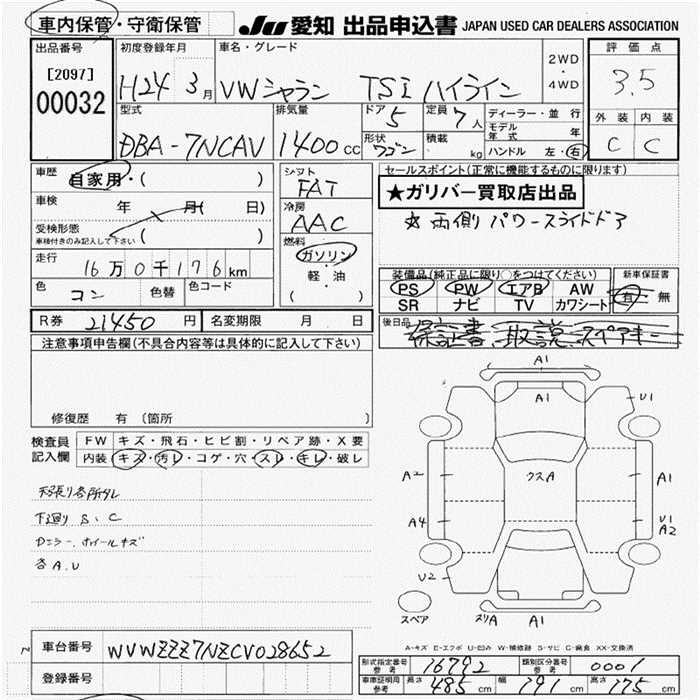 車内保管・守衛保管
JU 愛知 出品申込書 JAPAN USED CAR DEALERS ASSOCIATION
出品番号
[2097]
00032
初度登録年月
H24 3月
車名・グレード
VWシャラン TSI ハイライン
2WD
・
4WD
評価点
3.5
型式
DBA-7NCAV
排気量
1400cc
ドア
5
定員
7人
形状
ワゴン
積載
kg
ディーラー・並行
モデル年式 年
ハンドル 左・右
外装 内装
C C
車歴
自家用・( )
車検
年 月( 日)
受検形態
車検付きのみ記入して下さい ( )
走行
16万0千176km
色
コン
色替
色コード
シフト
FAT
冷房
AAC
燃料
ガソリン
・
軽・油
( )
セールスポイント(正常に機能するものに限ります)
★ガリバー買取店出品
☆両側パワースライドドア
装備品(純正品に限り○をつけてください)
PS PW エアB AW
SR ナビ TV カワシート
新車保証書
有・無
R券 21450円 名変期限 月 日
後日品
保証書、取説、スペアキー
注意事項申告欄(不具合内容等は具体的に記入して下さい)
修復歴 有 (箇所 )
検査員
記入欄
FW キズ・飛石・ヒビ割・リペア跡・X要
内装 キズ・汚レ・コゲ・穴・スレ・キレ・破レ
天張り各所タレ
下廻りS、C
Dミラー、ホイールキズ
各A.U
A1
A1
U1
A2
クスA
A1
A4
U1
A2
U2
スペア
スリA
A1
A1
A-キズ E-エクボ U-凹み W-補修跡 S-サビ C-腐食 XX-交換済
車台番号
WVWZZZ7NZCV028652
登録番号
形式指定番号
参考
16792
類別区分番号
参考
0001
車庫証明用
参考
長さ 485cm
幅 191cm
高さ 175cm